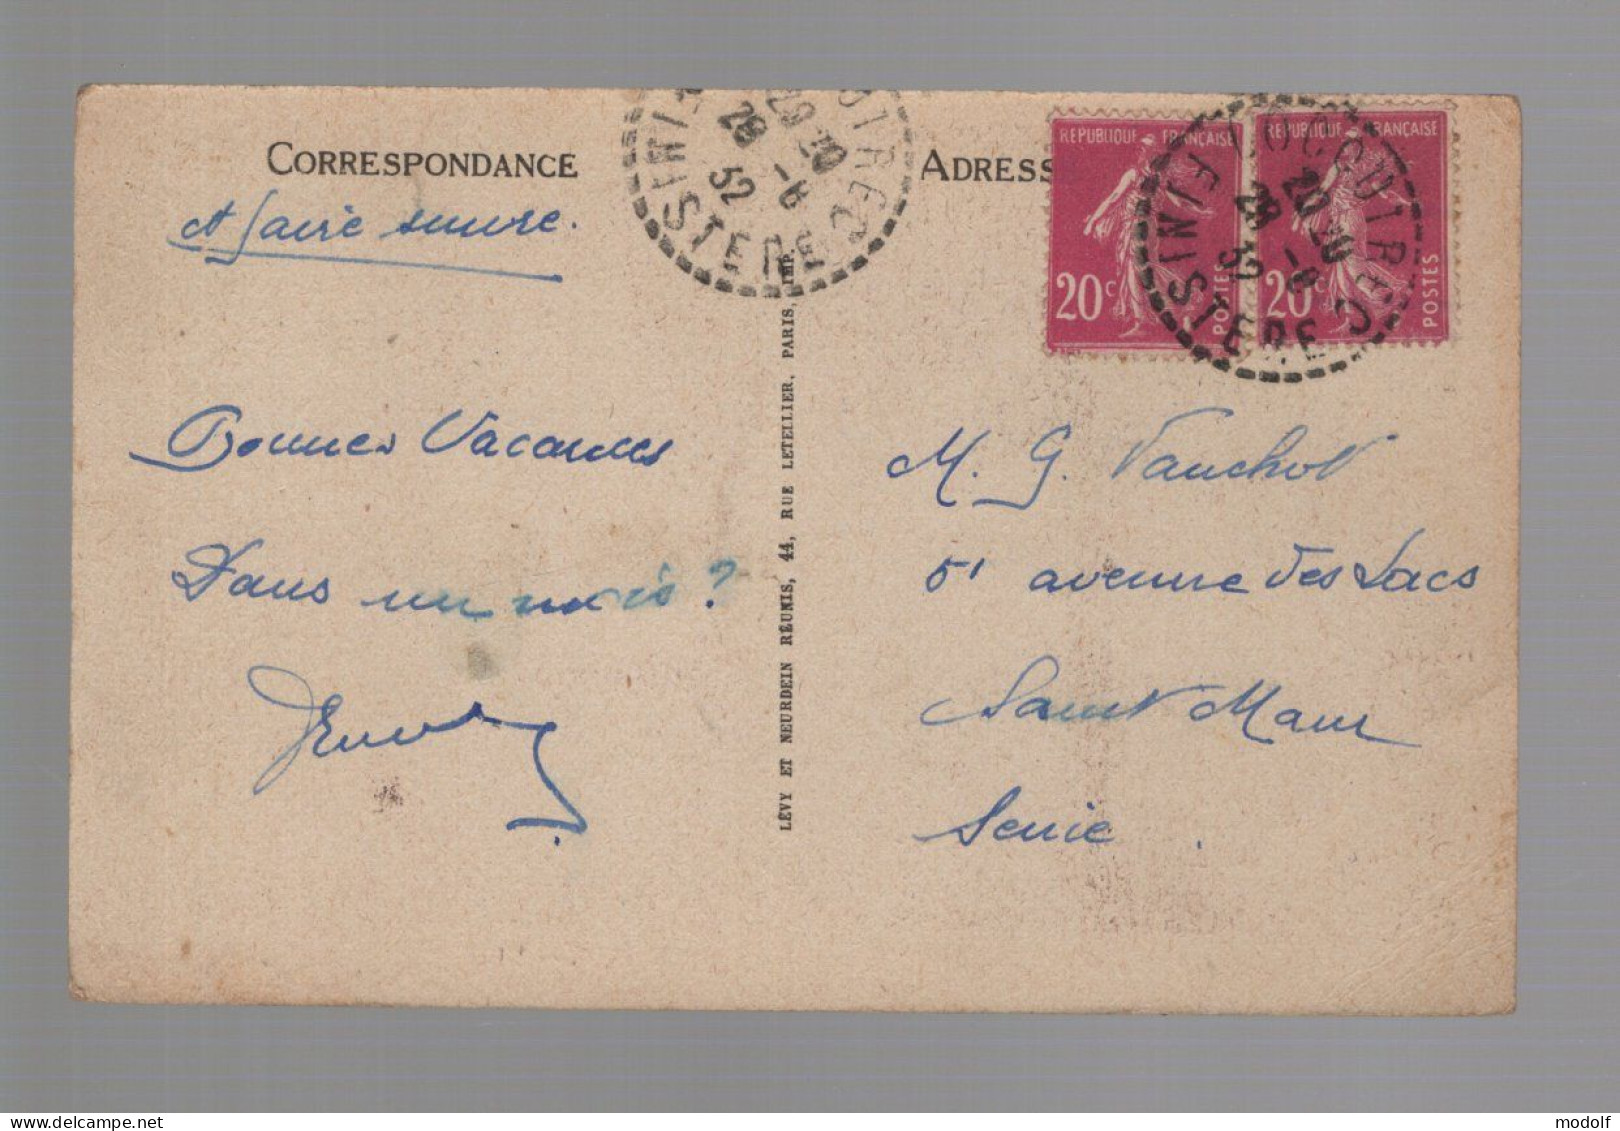 CORRESPONDANCE
A faire suivre.
Bonnes Vacances
Dans un mois ?
LÉVY ET NEURDEIN RÉUNIS, 44, RUE LETELLIER, PARIS, IMP.
ADRESS
REPUBLIQUE FRANÇAISE
20c
POSTES
REPUBLIQUE FRANÇAISE
20c
POSTES
LOCQUIREC
20 20
28 -8
32
FINISTERE
20 20
28 -8
32
FINISTERE
M. G. Vauchot
51 avenue des Lacs
Saint Maur
Seine
delcampe.net
modolf